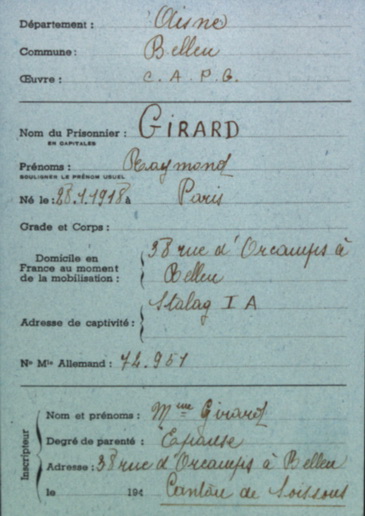 Département : Aisne
Commune : Belleu
Œuvre : C. A. P. G.
Nom du Prisonnier : GIRARD
EN CAPITALES
Prénoms : Raymond
SOULIGNER LE PRÉNOM USUEL
Né le : 28.1.1918 à Paris
Grade et Corps :
Domicile en France au moment de la mobilisation : 38 rue d'Orcamps à
Belleu
Stalag I A
Adresse de captivité :
Nº Mle Allemand : 74.951
Inscripteur
Nom et prénoms : Mme Girard
Degré de parenté : Epouse
Adresse : 38 rue d'Orcamps à Belleu
le 194 Canton de Soissons